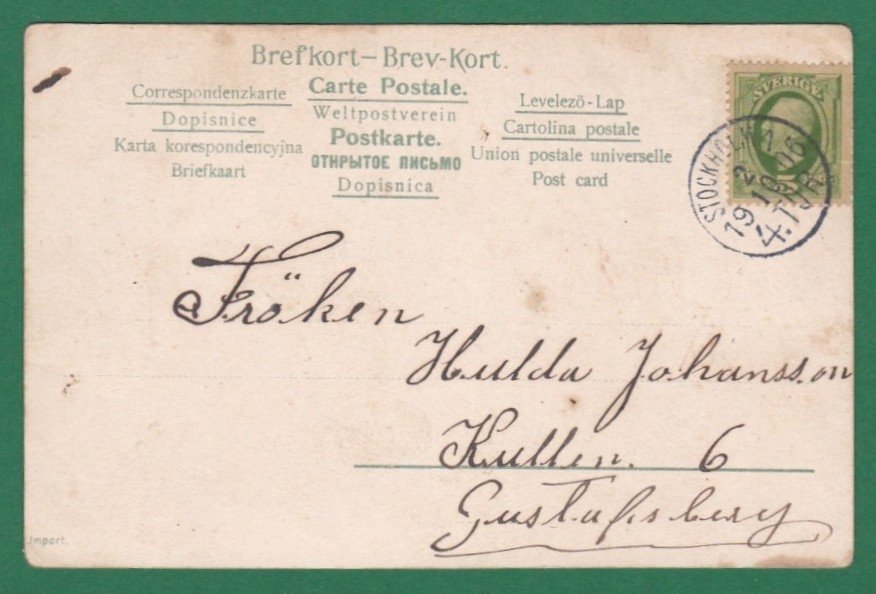 Brefkort – Brev-Kort.
Correspondenzkarte
Dopisnice
Karta korespondencyjna
Briefkaart
Carte Postale.
Weltpostverein
Postkarte.
ОТКРЫТОЕ ПИСЬМО
Dopisnica
Levelező-Lap
Cartolina postale
Union postale universelle
Post card
SVERIGE
STOCKHOLM 1
19 2 05
4.TUR
Fröken
Hulda Johansson
Kullen. 6
Gustafsberg
Import.